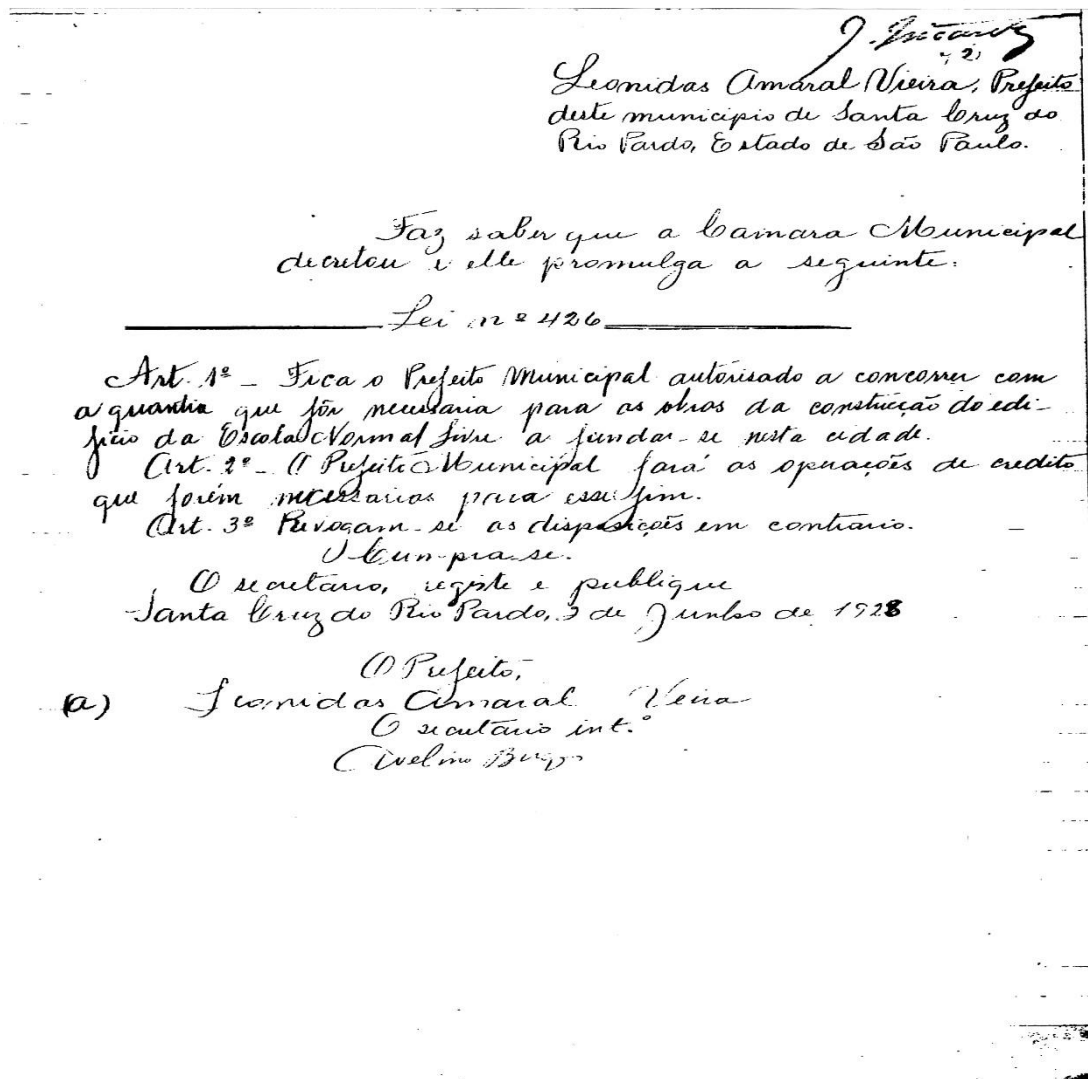 Leonidas Amaral Vieira, Prefeito
deste municipio de Santa Cruz do
Rio Pardo, Estado de São Paulo.
Faz saber que a Camara Municipal
decretou e elle promulga a seguinte:
Lei nº 426
Art. 1º - Fica o Prefeito Municipal autorisado a concorrer com
a quantia que fôr necessaria para as obras da construcção do edi-
ficio da Escola Normal Livre a fundar-se nesta cidade.
Art. 2º - O Prefeito Municipal fará as operações de credito
que forem necessarias para esse fim.
Art. 3º Revogam-se as disposições em contrario.
Cumpra-se.
O secretario, registe e publique
Santa Cruz do Rio Pardo, 3 de Junho de 1928
O Prefeito,
(a) Leonidas Amaral Vieira
O secretario int.º
Avelino